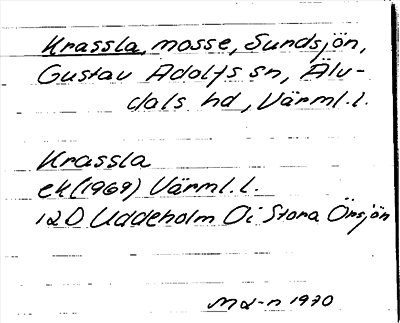 Krassla, mosse, Sundsjön,
Gustav Adolfs sn, Älv-
dals hd, Värml.l.
Krassla
ek (1969) Värml.l.
12D Uddeholm 0i Stora Örsjön
1970